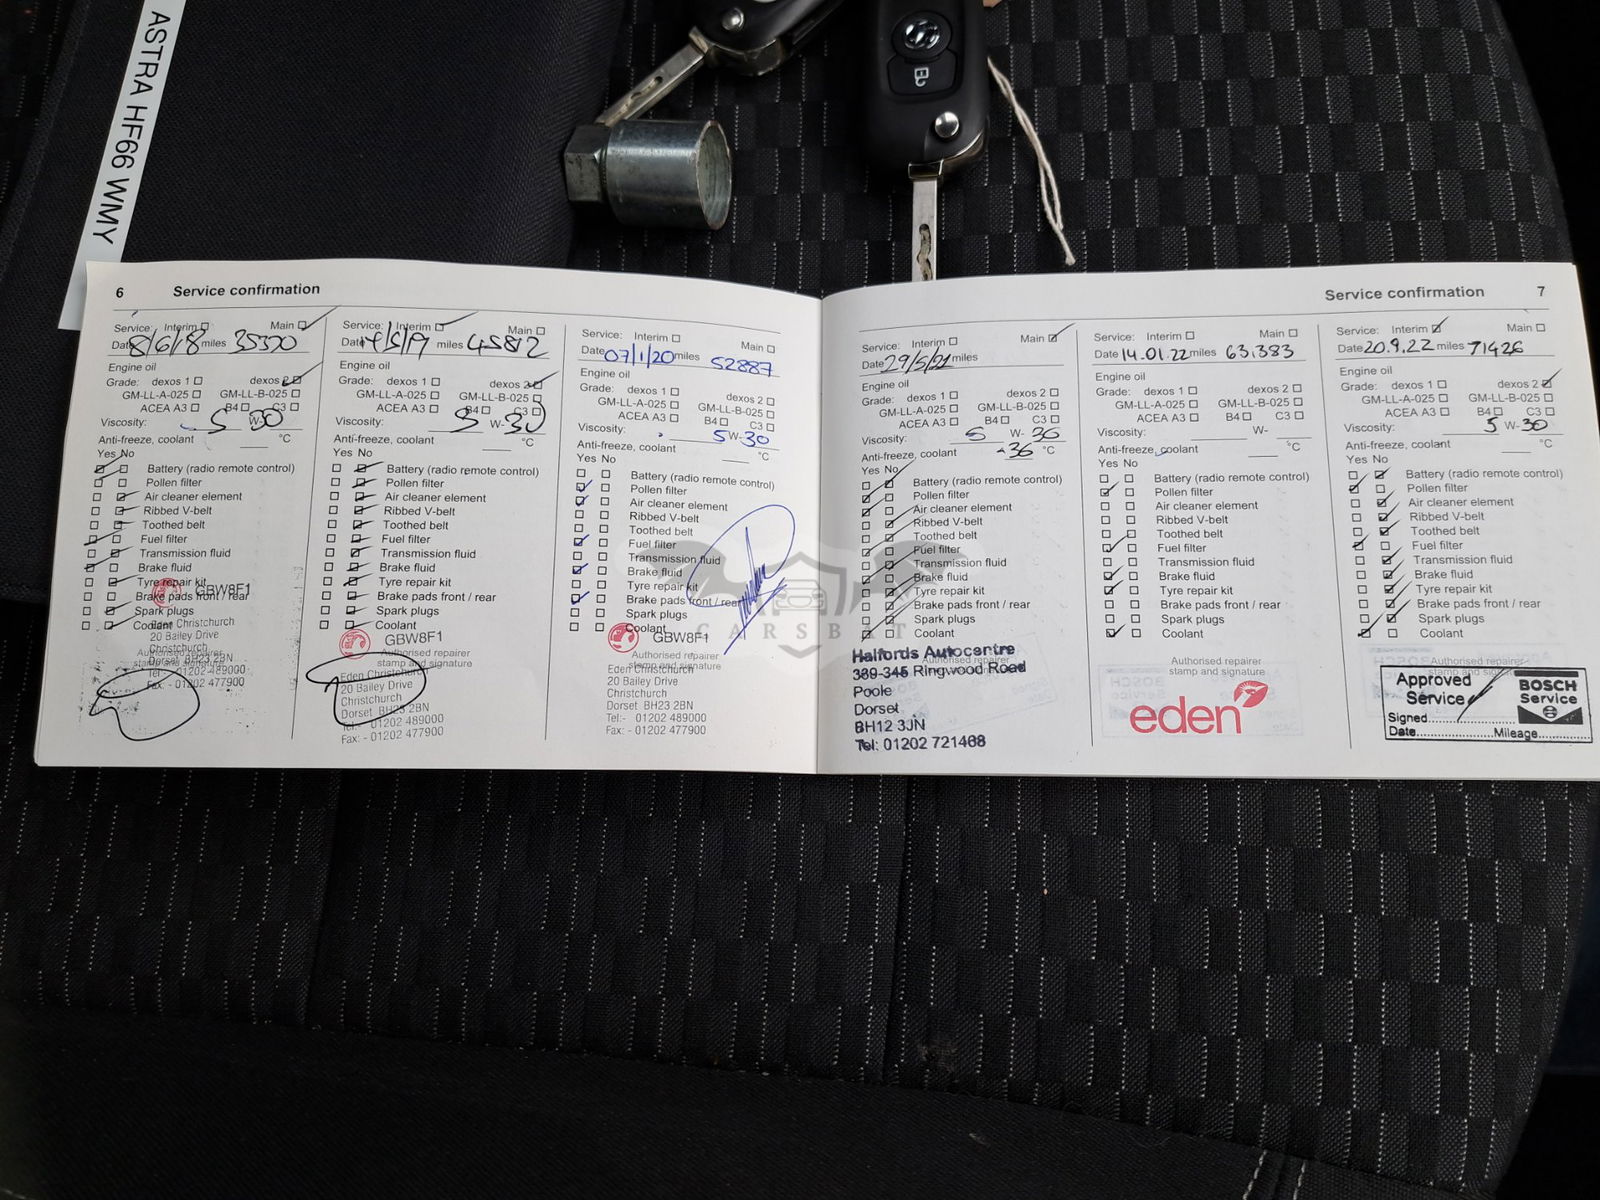 ASTRA HF66 WMY
6 Service confirmation
Service: Interim Main
Date 8/6/18 miles 35370
Engine oil
Grade: dexos 1 dexos 2
GM-LL-A-025 GM-LL-B-025
ACEA A3 B4 C3
Viscosity: 5 W-30
Anti-freeze, coolant °C
Yes No
Battery (radio remote control)
Pollen filter
Air cleaner element
Ribbed V-belt
Toothed belt
Fuel filter
Transmission fluid
Brake fluid
Tyre repair kit
Brake pads front / rear
Spark plugs
Coolant
GBW8F1
Authorised repairer
stamp and signature
Eden Christchurch
20 Bailey Drive
Christchurch
Dorset BH23 2BN
Tel:- 01202 489000
Fax: - 01202 477900
Service: Interim Main
Date miles 45812
Engine oil
Grade: dexos 1 dexos 2
GM-LL-A-025 GM-LL-B-025
ACEA A3 B4 C3
Viscosity: 5 W-30
Anti-freeze, coolant °C
Yes No
Battery (radio remote control)
Pollen filter
Air cleaner element
Ribbed V-belt
Toothed belt
Fuel filter
Transmission fluid
Brake fluid
Tyre repair kit
Brake pads front / rear
Spark plugs
Coolant
GBW8F1
Authorised repairer
stamp and signature
Eden Christchurch
20 Bailey Drive
Christchurch
Dorset BH23 2BN
Tel:- 01202 489000
Fax: - 01202 477900
Service: Interim Main
Date 07/1/20 miles 52887
Engine oil
Grade: dexos 1 dexos 2
GM-LL-A-025 GM-LL-B-025
ACEA A3 B4 C3
Viscosity: 5 W-30
Anti-freeze, coolant °C
Yes No
Battery (radio remote control)
Pollen filter
Air cleaner element
Ribbed V-belt
Toothed belt
Fuel filter
Transmission fluid
Brake fluid
Tyre repair kit
Brake pads front / rear
Spark plugs
Coolant
GBW8F1
Authorised repairer
stamp and signature
Eden Christchurch
20 Bailey Drive
Christchurch
Dorset BH23 2BN
Tel:- 01202 489000
Fax: - 01202 477900
CARSBAT
Service confirmation 7
Service: Interim Main
Date 29/5/21 miles
Engine oil
Grade: dexos 1 dexos 2
GM-LL-A-025 GM-LL-B-025
ACEA A3 B4 C3
Viscosity: 5 W-30
Anti-freeze, coolant -36 °C
Yes No
Battery (radio remote control)
Pollen filter
Air cleaner element
Ribbed V-belt
Toothed belt
Fuel filter
Transmission fluid
Brake fluid
Tyre repair kit
Brake pads front / rear
Spark plugs
Coolant
Halfords Autocentre
339-345 Ringwood Road
Poole
Dorset
BH12 3JN
Tel: 01202 721468
Service: Interim Main
Date 14.01.22 miles 63,383
Engine oil
Grade: dexos 1 dexos 2
GM-LL-A-025 GM-LL-B-025
ACEA A3 B4 C3
Viscosity: W-
Anti-freeze, coolant °C
Yes No
Battery (radio remote control)
Pollen filter
Air cleaner element
Ribbed V-belt
Toothed belt
Fuel filter
Transmission fluid
Brake fluid
Tyre repair kit
Brake pads front / rear
Spark plugs
Coolant
Authorised repairer
stamp and signature
eden
Service: Interim Main
Date 20.9.22 miles 71426
Engine oil
Grade: dexos 1 dexos 2
GM-LL-A-025 GM-LL-B-025
ACEA A3 B4 C3
Viscosity: 5 W-30
Anti-freeze, coolant °C
Yes No
Battery (radio remote control)
Pollen filter
Air cleaner element
Ribbed V-belt
Toothed belt
Fuel filter
Transmission fluid
Brake fluid
Tyre repair kit
Brake pads front / rear
Spark plugs
Coolant
Authorised repairer
stamp and signature
Approved Service
BOSCH Service
Signed
Date Mileage